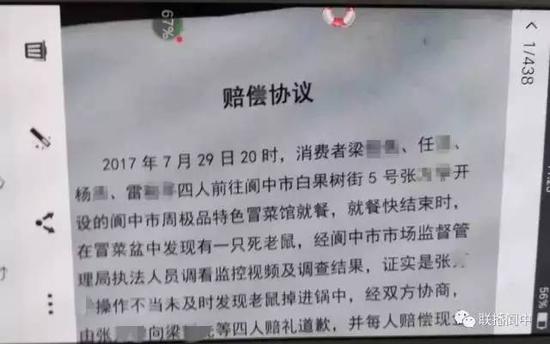 67%
1/438
赔偿协议
2017年7月29日20时，消费者梁、任、
杨、雷等四人前往阆中市白果树街5号张开
设的阆中市周极品特色冒菜馆就餐，就餐快结束时，
在冒菜盆中发现有一只死老鼠，经阆中市市场监督管
理局执法人员调看监控视频及调查结果，证实是张
操作不当未及时发现老鼠掉进锅中，经双方协商，
由张向梁等四人赔礼道歉，并每人赔偿现
56%
联播阆中